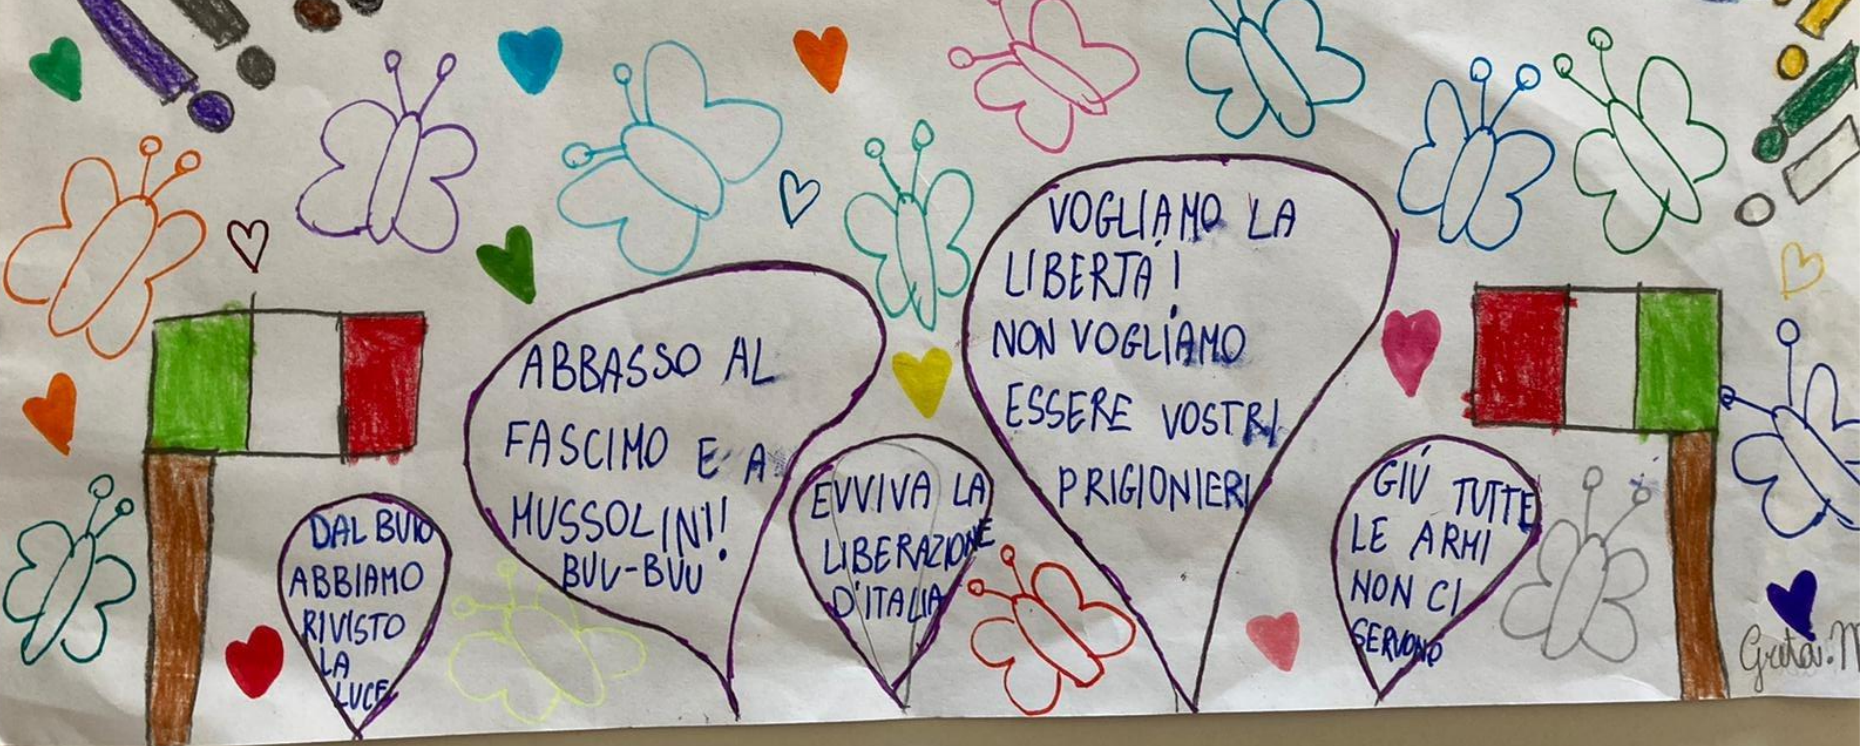 DAL BUIO
ABBIAMO
RIVISTO
LA
LUCE
ABBASSO AL
FASCIMO E A
MUSSOLINI!
BUU-BUU
EVVIVA LA
LIBERAZIONE
D'ITALIA
VOGLIAMO LA
LIBERTÀ!
NON VOGLIAMO
ESSERE VOSTRI
PRIGIONIERI
GIÚ TUTTE
LE ARMI
NON CI
SERVONO
Greta.M